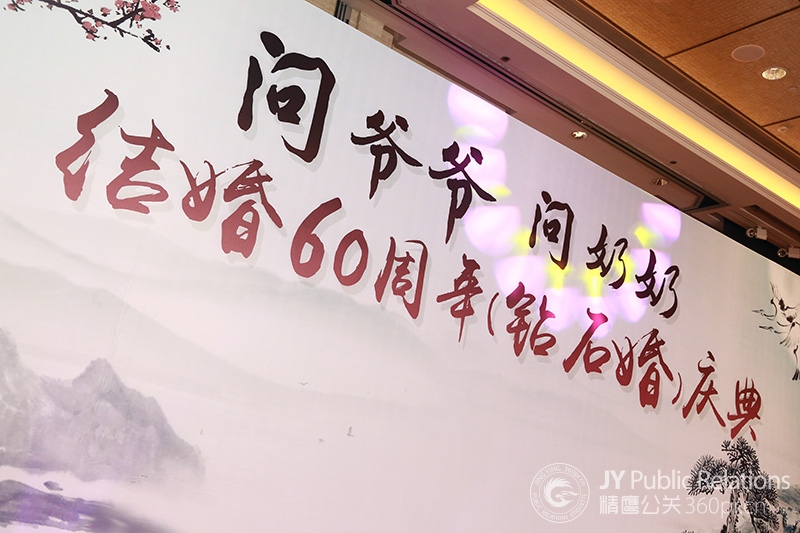 问爷爷 问奶奶
结婚60周年(钻石婚)庆典
JY Public Relations
情鹰公关360prcn